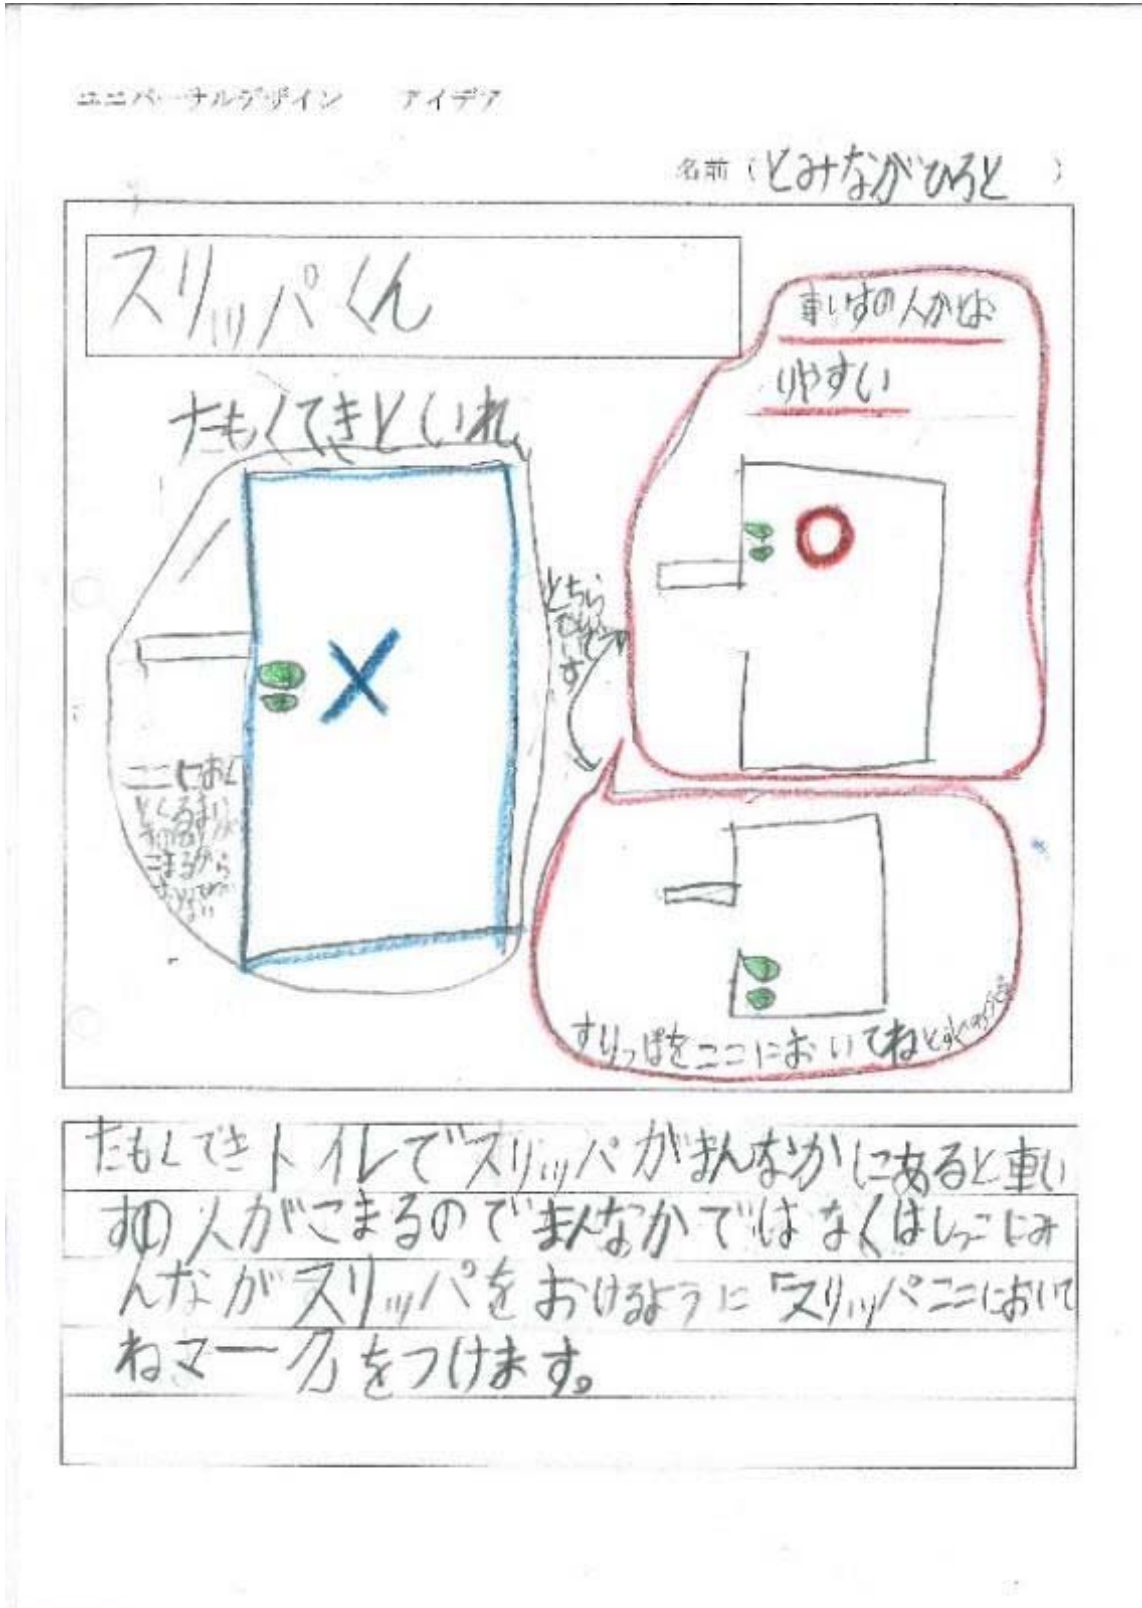 ユニバーサルデザイン アイデア
名前（とみながひろと）
スリッパくん
車いすの人がとお
りやすい
たもくてきといれ
どちら
でもいいで
す
ここにおく
とくるまい
すの人が
こまるから
おいては
いけない
すりっぱをここにおいてね
たもくてきトイレでスリッパがまんなかにあると車い
すの人がこまるのでまんなかではなくはしっこにみ
んながスリッパをおけるように「スリッパここにおいて
ねマーク」をつけます。